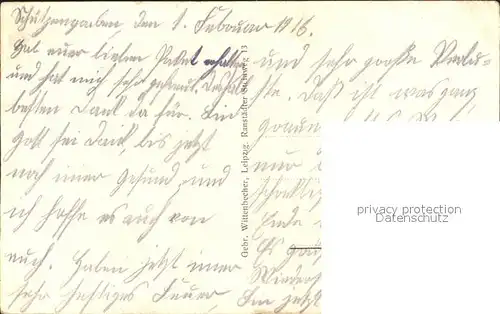 Schützengraben, den 1. Februar 1916.
Hab euer liebes Paket erhalten
und hat mich sehr gefreut. Deshalb
besten Dank da für. Bin
Gott sei Dank, bis jetzt
noch imer gesund und
ich hoffe es auch von
euch. Haben jetzt imer
sehr heftiges Feuer,
und sehr große Verlu-
ste. Daß ist was ganz
nur
Ende
Wieder
Bin jetzt
Gebr. Wittenbecher, Leipzig. Ranstädter Steinweg 13
privacy protection
Datenschutz